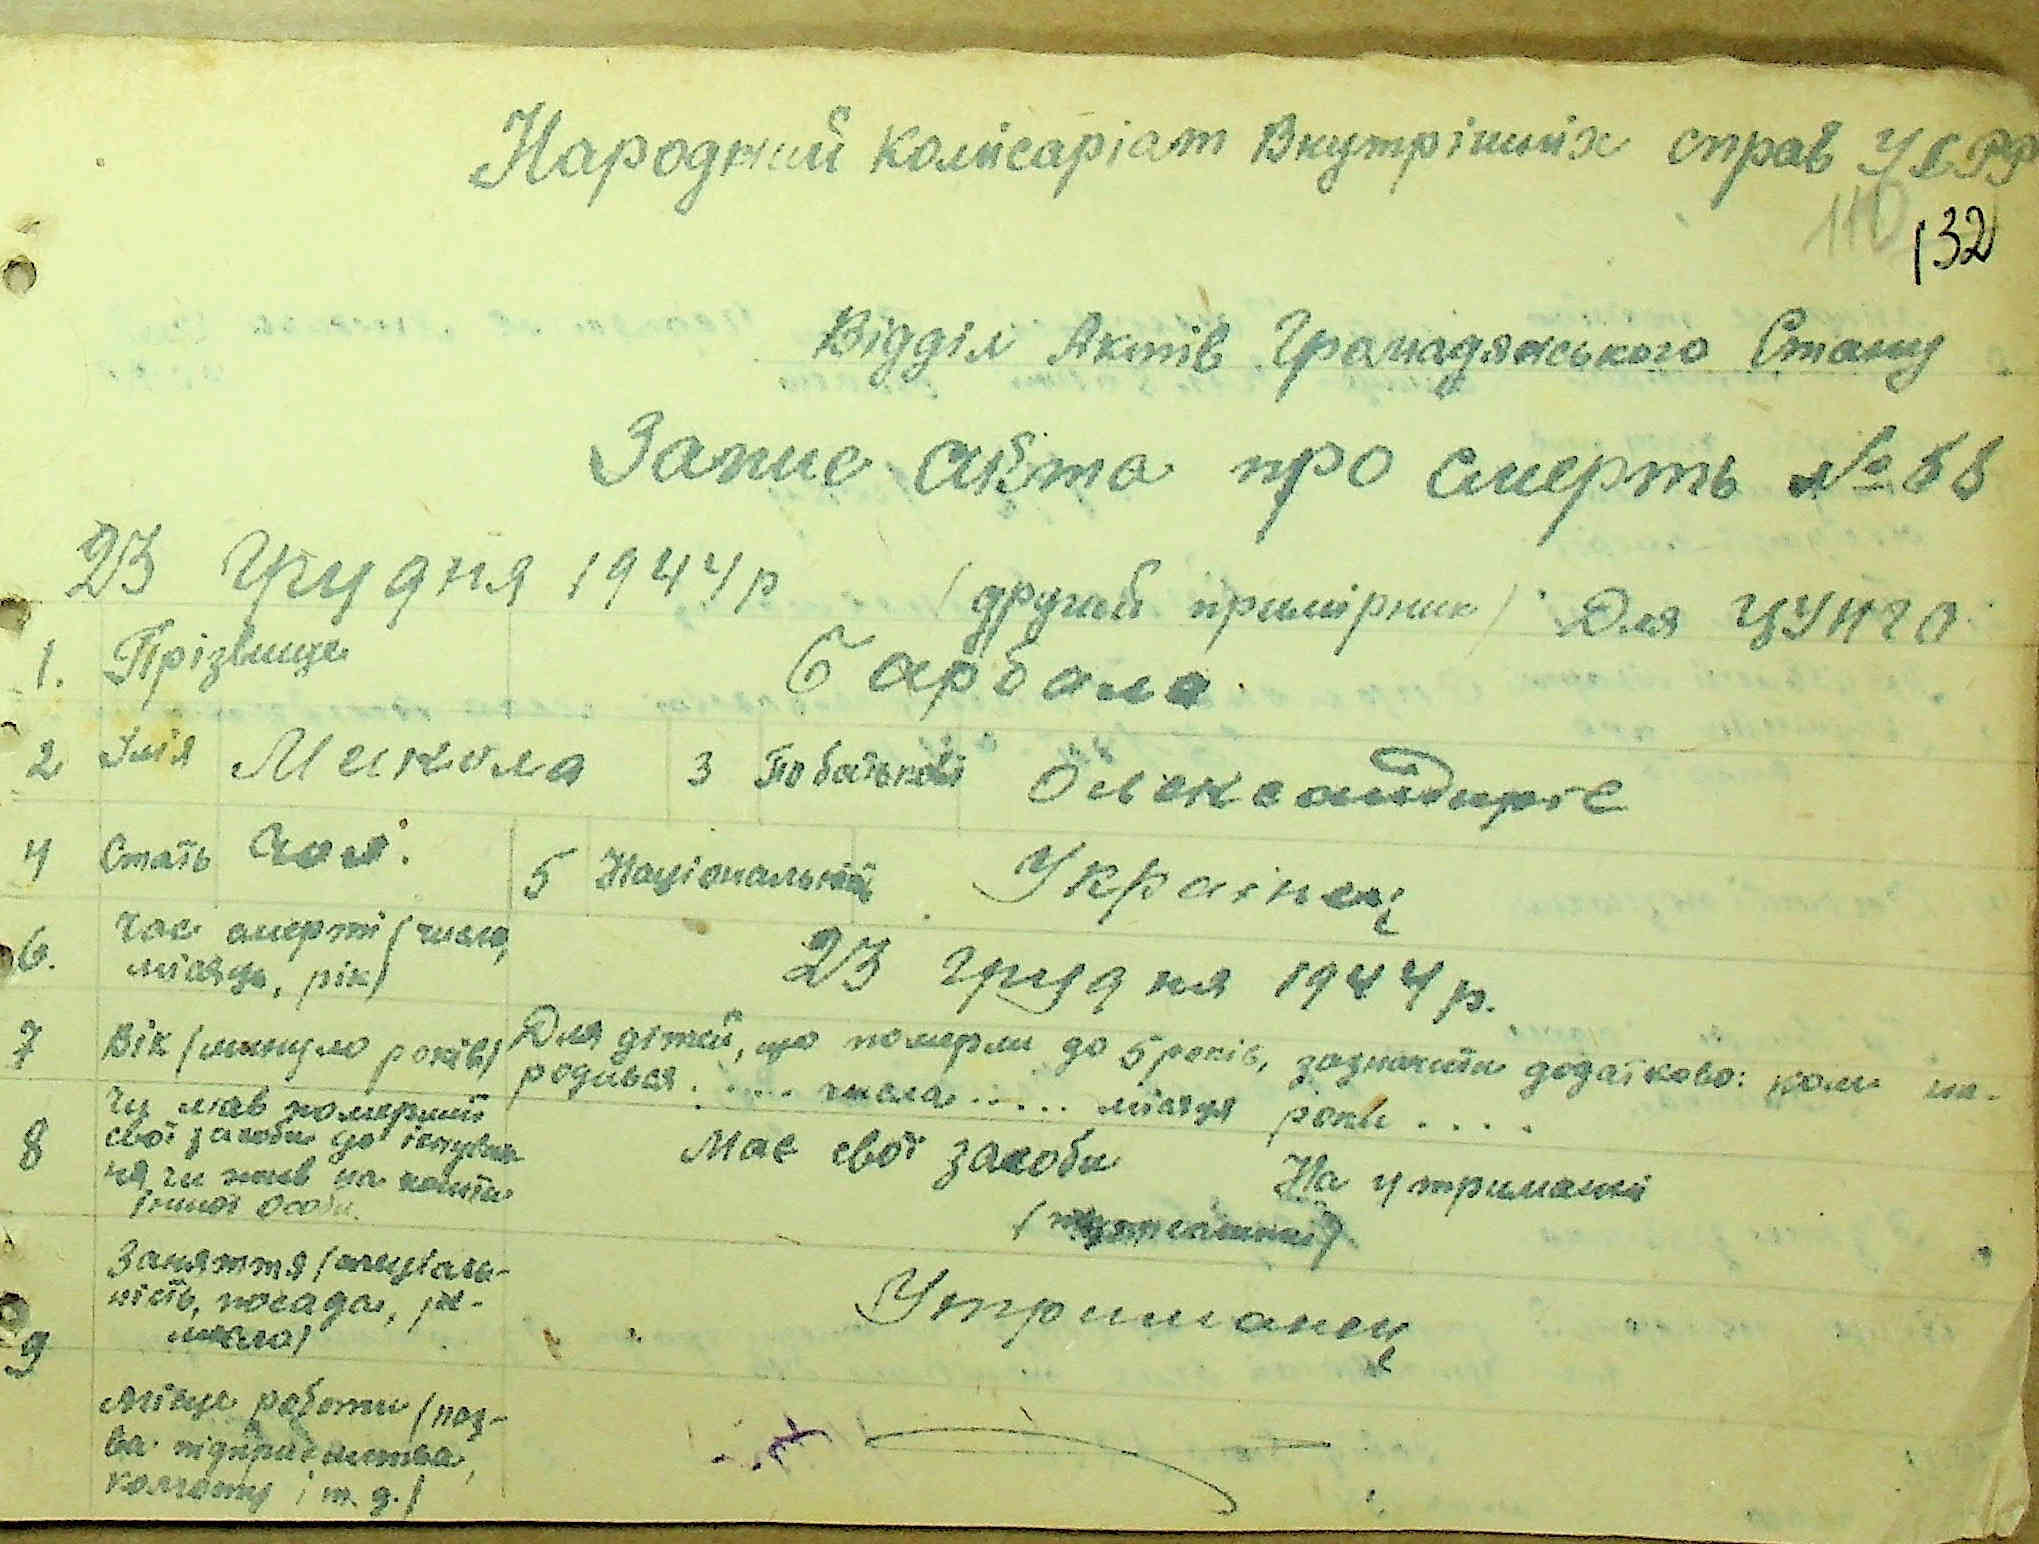 Народний Комісаріат Внутрішніх справ УСРР
110
132
Відділ Актів Громадянського Стану
Запис акта про смерть №
23 Грудня 1944 р (другий примірник) Для ЦУНГО
1. Прізвище Барбала
2 Імія Микола 3 Побатькові
4 Стать Чол. 5 Національність Украінец
6. Час смерті (число, 23 грудня 1944 р.
місяць, рік)
7 Вік (минуло років) Для дітей, що померли до 5 років, зазначити додатково: коли на-
родився ..... числа ..... місяця року ....
8 Чи мав померший Має свої засоби На утриманні
свої засоби до існуван
ня чи жив на кошти
іншої особи.
9 Заняття (спеціаль- Утриманец
ність, посада, ре-
месло)
Місце роботи (наз-
ва підприємства,
колгоспу і т. д.)